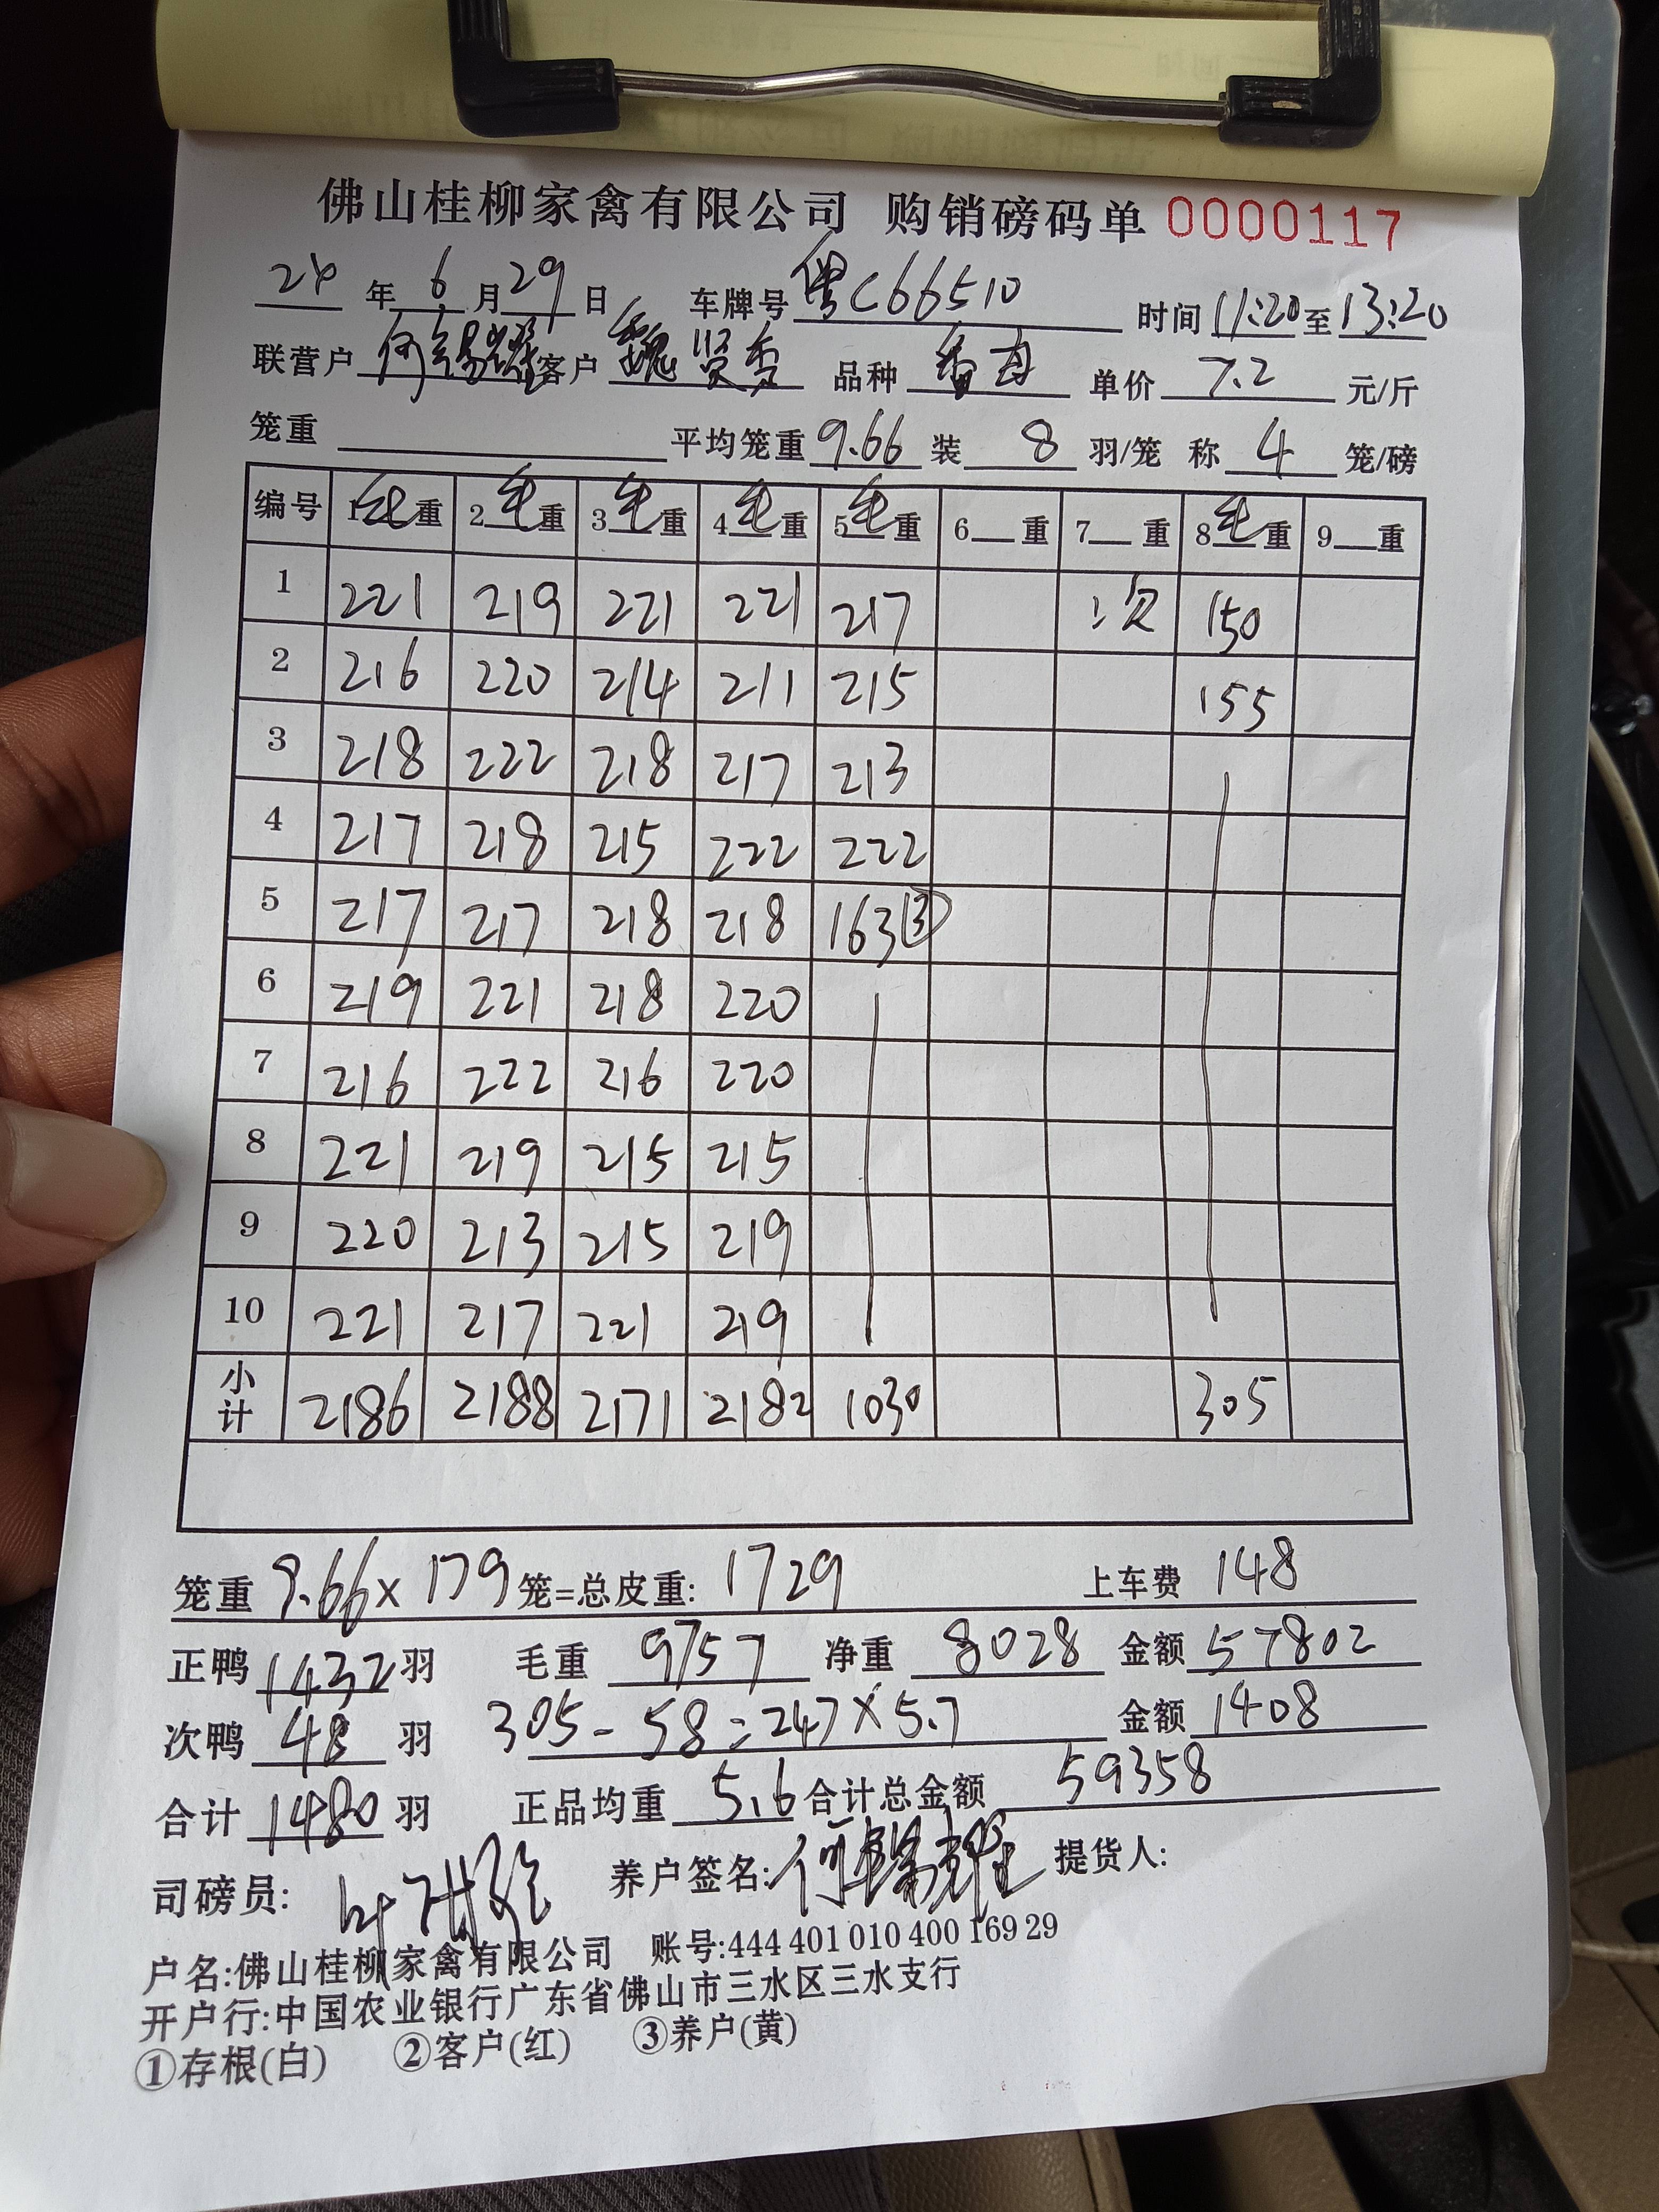 佛山桂柳家禽有限公司 购销磅码单 0000117
24 年 6 月 29 日 车牌号 粤C66510 时间 11:20 至 13:20
联营户 何锦耀 客户 魏贤秀 品种 番母 单价 7.2 元/斤
笼重 平均笼重 9.66 装 8 羽/笼 称 4 笼/磅
编号 1毛重 2毛重 3毛重 4毛重 5毛重 6重 7重 8毛重 9重
1 221 219 221 221 217 次 150
2 216 220 214 211 215 155
3 218 222 218 217 213
4 217 218 215 222 222
5 217 217 218 218 163③
6 219 221 218 220
7 216 222 216 220
8 221 219 215 215
9 220 213 215 219
10 221 217 221 219
小计 2186 2188 2171 2182 1030 305
笼重 9.66 × 179 笼=总皮重: 1729 上车费 148
正鸭 1432 羽 毛重 9757 净重 8028 金额 57802
次鸭 48 羽 305-58=247×5.7 金额 1408
合计 1480 羽 正品均重 5.6 合计总金额 59358
司磅员: 养户签名: 何锦耀 提货人:
户名:佛山桂柳家禽有限公司 账号:444 401 010 400 169 29
开户行:中国农业银行广东省佛山市三水区三水支行
①存根(白) ②客户(红) ③养户(黄)